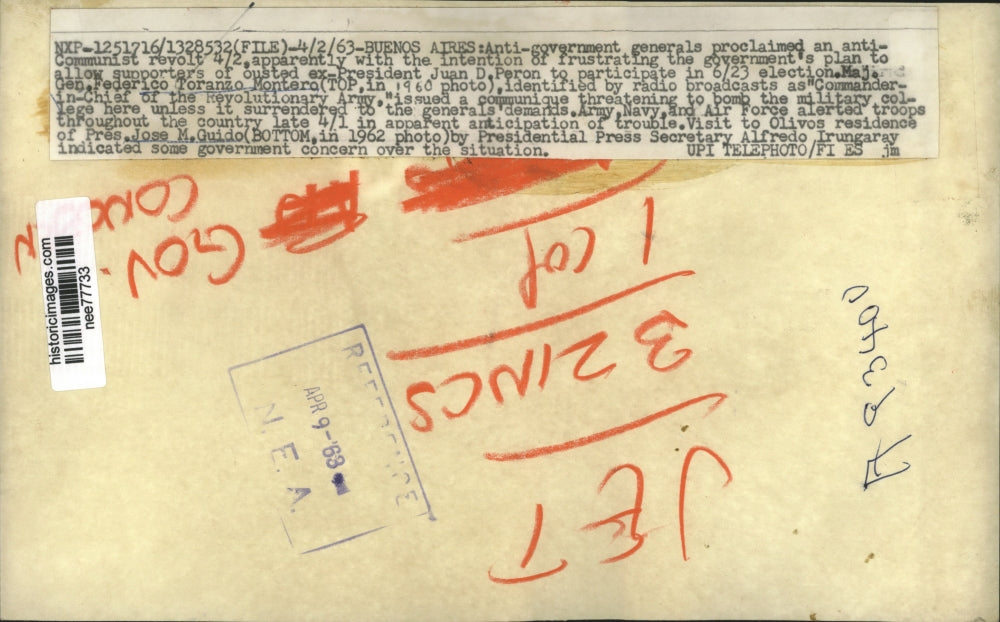 NXP-1251716/1328532(FILE)-4/2/63-BUENOS AIRES:Anti-government generals proclaimed an anti-
Communist revolt 4/2,apparently with the intention of frustrating the government's plan to
allow supporters of ousted ex-President Juan D.Peron to participate in 6/23 election.Maj.
Gen.Federico Toranzo Montero(TOP,in 1960 photo),identified by radio broadcasts as"Commander-
in-Chief of the Revolutionary Army,"issued a communique threatening to bomb the military col-
lege here unless it surrendered to the generals'demands.Army,Navy,and Air Force alerted troops
throughout the country late 4/1 in apparent anticipation of trouble.Visit to Olivos residence
of Pres.Jose M.Guido(BOTTOM,in 1962 photo)by Presidential Press Secretary Alfredo Irungaray
indicated some government concern over the situation. UPI TELEPHOTO/FI ES jm
historicimages.com
nee77733
GOV.
1 COL
3 ZINCS
JET
REFERENCE
APR 9-'63
N. E. A.